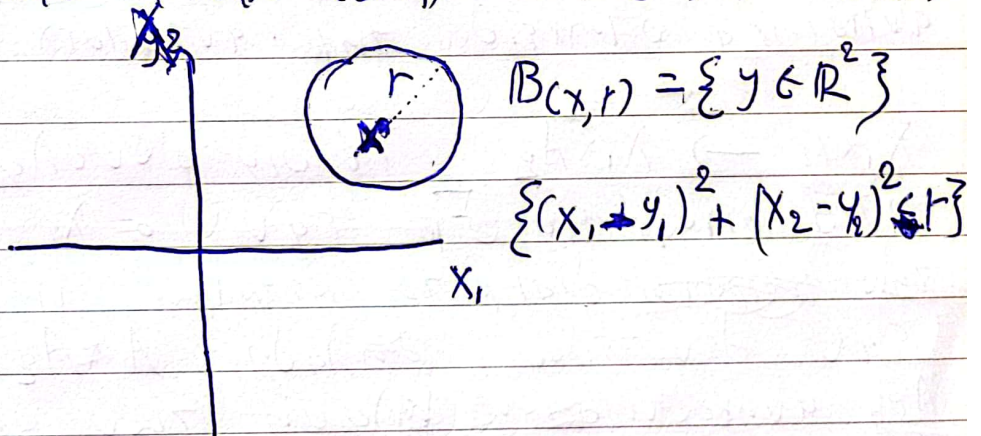 X₂
r
x
B(x,r) = { y ∈ ℝ² }
{(x₁ - y₁)² + (x₂ - y₂)² ≤ r}
x₁